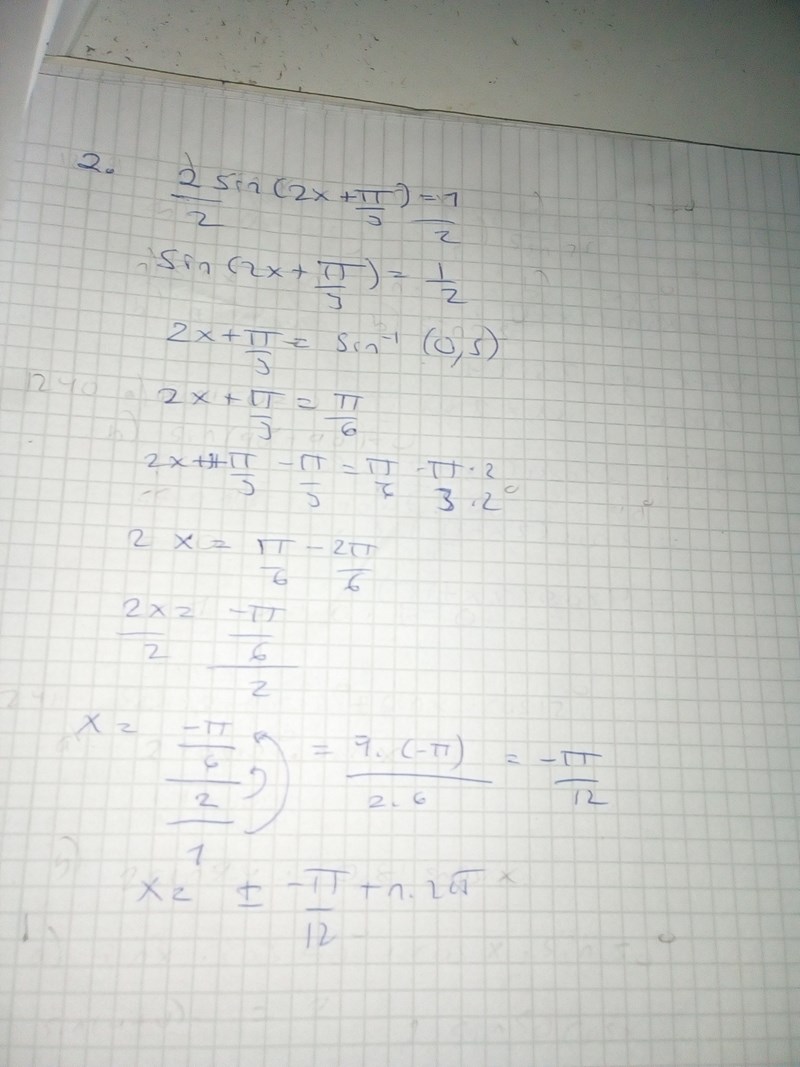 2. 2 sin(2x + π/3) = 1
2 2
sin(2x + π/3) = 1/2
2x + π/3 = sin⁻¹(0,5)
2x + π/3 = π/6
2x + π/3 - π/3 = π/6 - π·2/3·2
2x = π/6 - 2π/6
2x/2 = -π/6/2
x = -π/6/2/1 = 1·(-π)/2·6 = -π/12
x = ± -π/12 + n·2π